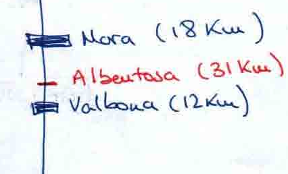 Mora (18 Km)
Albentosa (31 Km)
Valbona (12 Km)